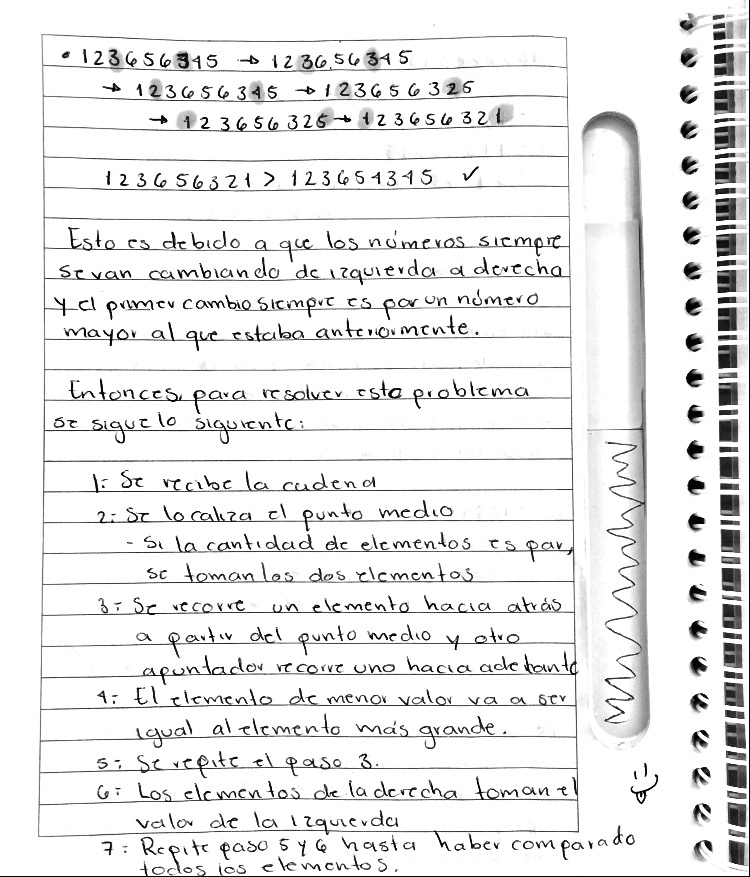 • 123656345 → 123656345
→ 123656345 → 123656325
→ 123656325 → 123656321
123656321 > 123654345 ✓
Esto es debido a que los números siempre
se van cambiando de izquierda a derecha
y el primer cambio siempre es por un número
mayor al que estaba anteriormente.
Entonces, para resolver este problema
se sigue lo siguiente:
1: Se recibe la cadena
2: Se localiza el punto medio
- Si la cantidad de elementos es par,
se toman los dos elementos
3: Se recorre un elemento hacia atrás
a partir del punto medio y otro
apuntador recorre uno hacia adelante
4: El elemento de menor valor va a ser
igual al elemento más grande.
5: Se repite el paso 3.
6: Los elementos de la derecha toman el
valor de la izquierda
7: Repite paso 5 y 6 hasta haber comparado
todos los elementos.